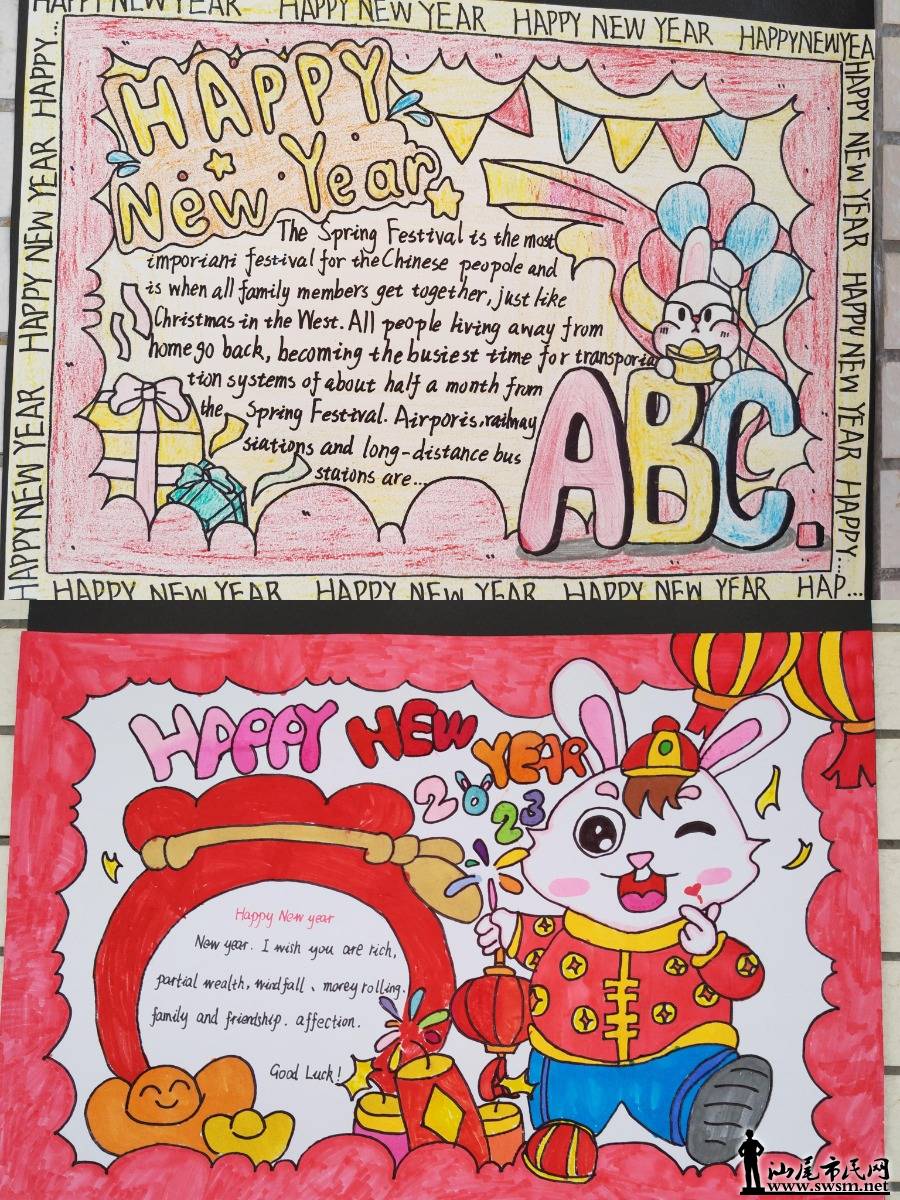 HAPPY NEW YEAR HAPPY NEW YEAR HAPPY NEW YEAR HAPPYNEWYEA
HAPPY NEW YEAR HAPPY NEW YEAR HAPPY...
HAPPY NEW YEAR HAPPY NEW YEAR HAPPY...
HAPPY
New Year
The Spring Festival is the most
imporiani festival for the Chinese peopole and
is when all family members get together, just like
Christmas in the West. All people living away from
home go back, becoming the busiest time for transporia
tion systems of about half a month from
the Spring Festival. Airporis, railway
siations and long-distance bus
staions are...
ABC.
HAPPY NEW YEAR HAPPY NEW YEAR HAPPY NEW YEAR HAP...
HAPPY NEW YEAR
2023
Happy New year
New year. I wish you are rich,
partial wealth, windfall、money rolling.
family and friendship. affection.
Good Luck!
汕尾市民网
www.swsm.net